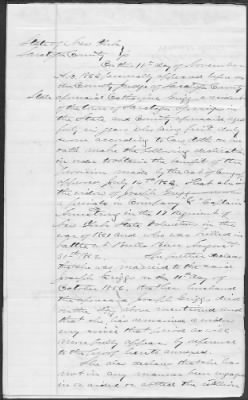 State of New York
Saratoga County SS
On this 11th day of November
A.D. 1862 personally appeared before
the County Judge of Saratoga County
State aforesaid Catharine Griggs a resident
of the town of Saratoga Springs in
the State and County aforesaid aged
forty six years who being first duly
sworn according to law doth on her
oath make the following declaration
in order to obtain the benefit of the
provision made by the act of Congress
approved July 14th 1862 That she is
the widow of Joseph Griggs who was
a private in Company G Captain
commanding in the 77 Regiment of
New York State Volunteers in the
war of 1861 and who was killed in
battle at Bulls Run August
30th 1862 She further declares
that she was married to the said
Joseph Griggs on the 16th day of
October 1856 that her husband
the aforesaid Joseph Griggs died
on the day above mentioned and
that she has remained a widow
ever since that period as will
more fully appear by reference
to the proof hereto annexed
She also declares that she has
not in any manner been engaged
in or aided or abetted the rebellion